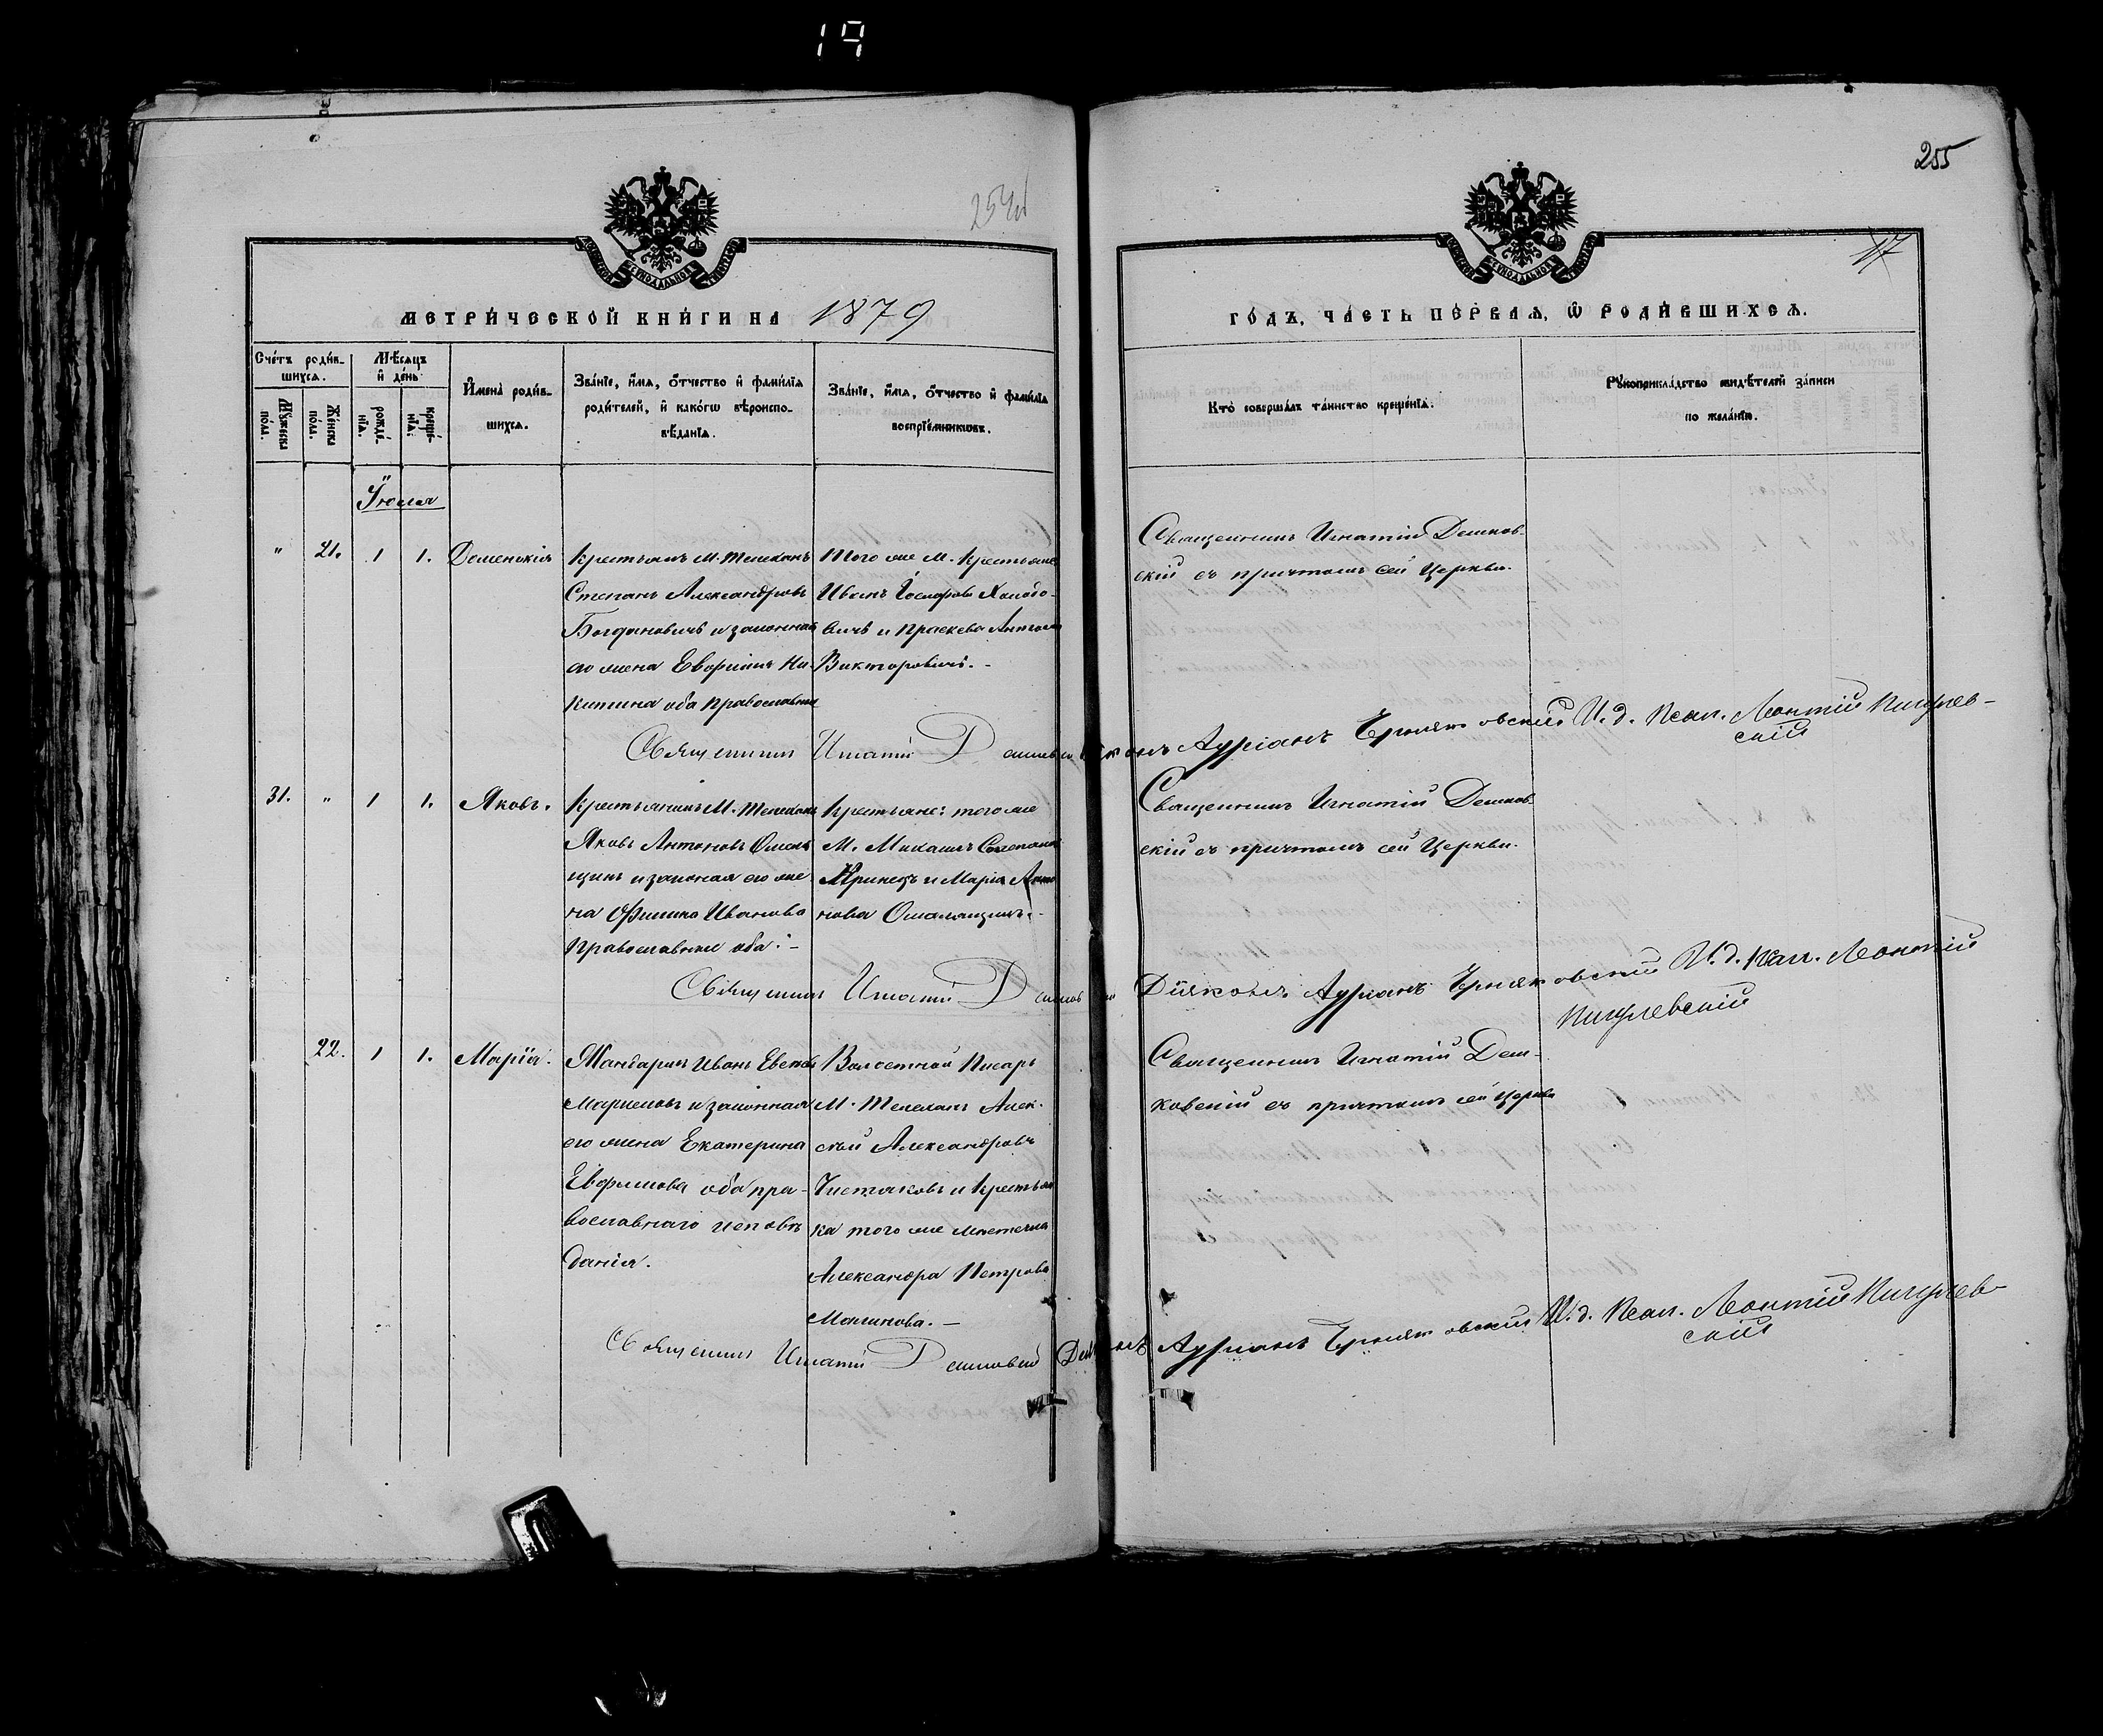 19
254об
255
17
МЕТРИЧЕСКОЙ КНИГИ НА 1879
ГОДЪ, ЧАСТЬ ПЕРВАЯ, Ѡ РОДИВШИХСЯ.
Счетъ родившихся.
Мужеска пола.
Женска пола.
Мѣсяцъ и день
рожденія.
крещенія.
Имена родившихся.
Званіе, имя, отчество и фамилія
родителей, и какогѡ вѣроиспо-
вѣданія.
Званіе, имя, отчество и фамилія
воспріемниковъ.
Кто совершалъ таинство крещенія.
Рукоприкладство свидѣтелей записи
по желанію.
Іюля
" 21. 1 1.
Крестьянъ М. Телеханъ
Степанъ Александровъ
Богдановичъ и законная
его жена Евфимія Ни-
китина оба православны
Того же М. Крестьяне
Иванъ
и Праскева
Викторовичъ. -
Священникъ Игнатій Дешков-
скій съ причтомъ сей Церкви.
Священникъ Игнатій Дешковскій Діяконъ И. д. Псал. Леонтій Пигулев-
скій
31. " 1 1. Яковъ.
Крестьянинъ М. Телеханъ
Яковъ Антоновъ Омель
щицъ и законая его же
на Иванова
православные оба. -
Крестьяне: того же
М. Михаилъ
и Марія Анто
нова
Священникъ Игнатій Дешков-
скій съ причтомъ сей Церкви.
Священникъ Игнатій Дешковскій Діяконъ И. д. Псал. Леонтій
Пигулевскій
22. 1 1. Марія.
Жандармъ Иванъ
и законная
его жена Екатерина
Евфимова оба пра-
вославнаго исповѣ
данія.
Волостной Писарь
М. Телеханъ Алек-
сѣй Александровъ
Чистяковъ и Крестьян
ка того же мѣстечка
Александра Петрова
Малинова. -
Священникъ Игнатій Деш-
ковскій съ причтомъ сей Церкви
Священникъ Игнатій Дешковскій Діяконъ И. д. Псал. Леонтій Пигулев-
скій